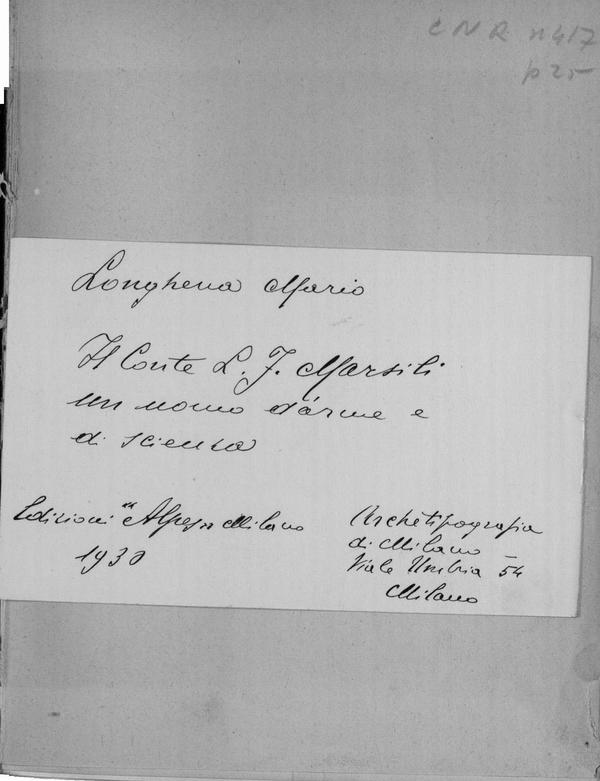 CNR n 417
p 25
Longhena Mario
Il Conte L. F. Marsili
un uomo d'arme e
di scienza
Edizioni "Alpes" Milano
1930
Archetipografia
di Milano –
Viale Umbria 54
Milano